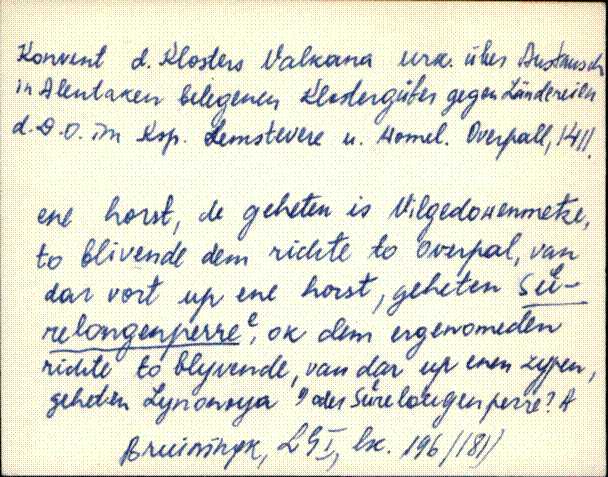 Konvent d. Klosters Valkana urk. über Austausch
in Alentaken belegenen Klostergüter gegen Ländereien
d. D. O. im Ksp. Lemstevere u. Homel. Overpall, 1411.
ene horst, de geheten is Vilgedowenmetze,
to blivende dem richte to Overpal, van
dar vort up ene horst, geheten Sü-
relongenperre e, ok dem ergenomeden
richte to blyvende, van dar up enen zypen,
geheten Lynonoya e) oder Sürelougenperre? A
Bruiningk, LG I, lk. 196 /181/